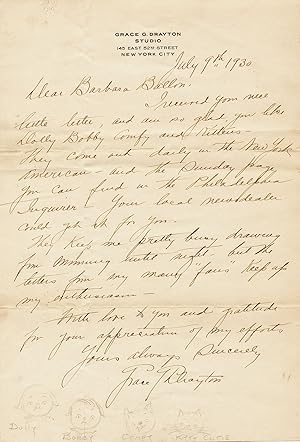 GRACE G. DRAYTON
STUDIO
145 EAST 52ND STREET
NEW YORK CITY
July 9th 1930
Dear Barbara
I received your nice
little letter, and am so glad, you like
Dolly Bobby Comfy and Kitties -
They come out daily in the New York
American - and the Sunday page
you can find in the Philadelphia
Inquirer - Your local newsdealer
could get it for you.
They keep me pretty busy drawing
from morning until night, but the
letters from my many "fans" keep up
my enthusiasm -
With love to you and gratitude
for your appreciation of my efforts
Yours always Sincerely
Grace G Drayton
DOLLY BOBBY COMFY KITTY CUTIE